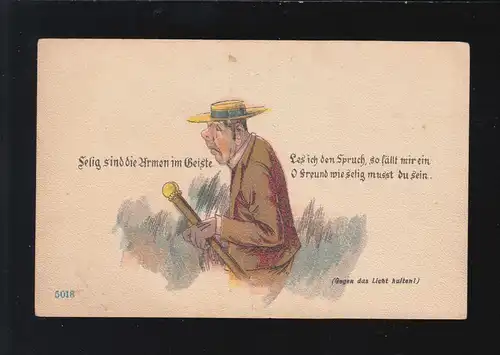 Selig sind die Armen im Geiste
Les ich den Spruch, so fällt mir ein
O Freund wie selig musst du sein..
(Gegen das Licht halten!)
5018